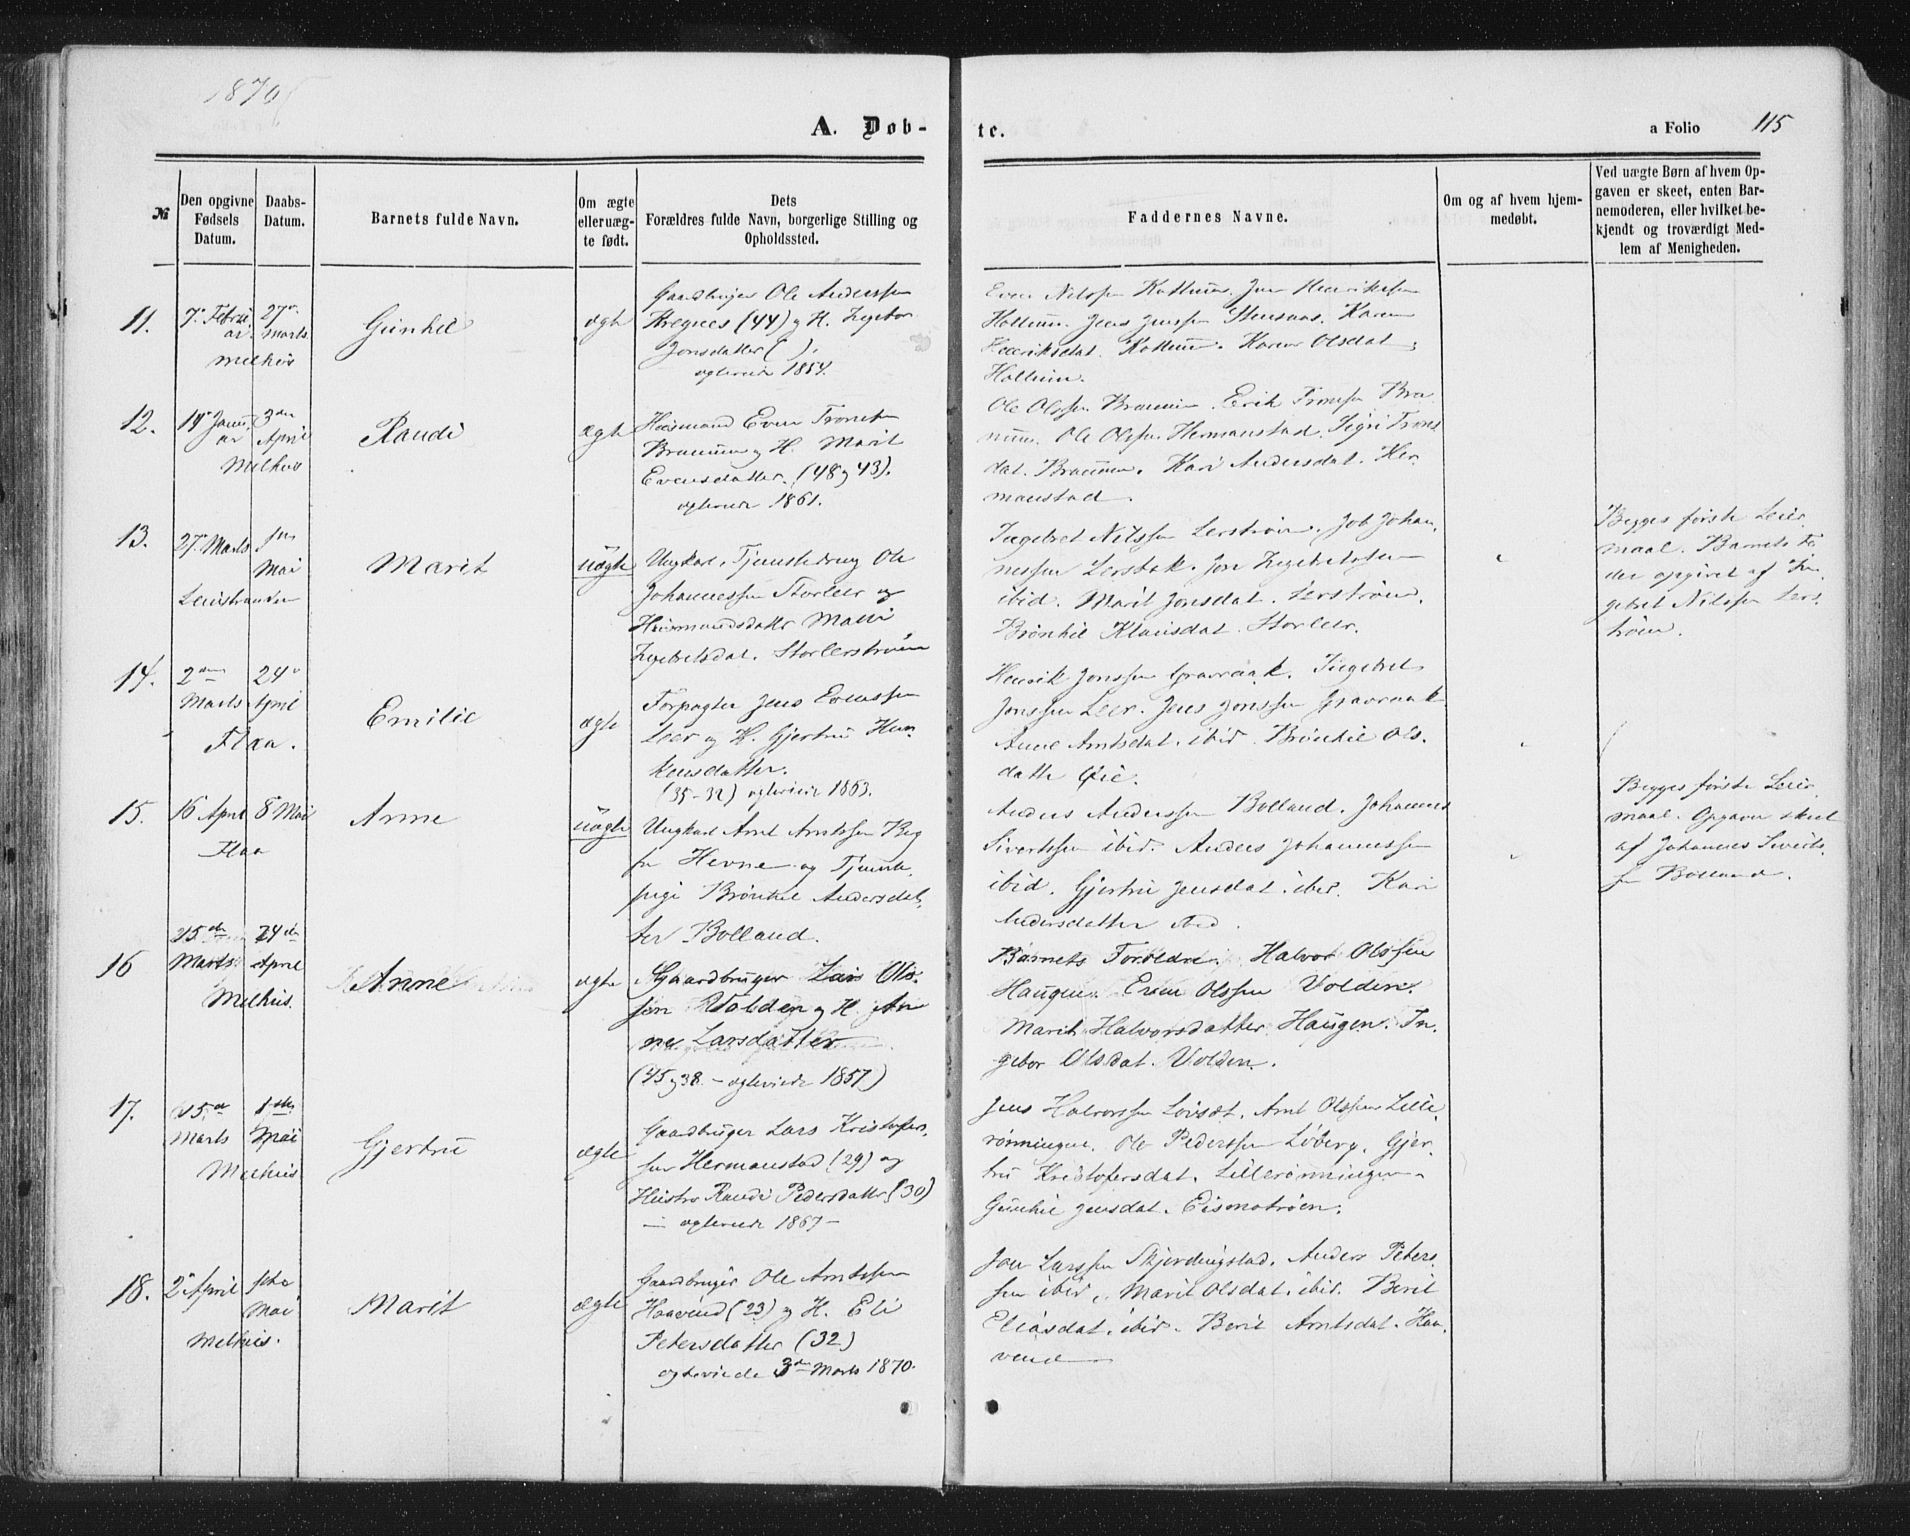 1870
A. Døb-
te.
a Folio 115
№
Den opgivne Fødsels Datum.
Daabs-Datum.
Barnets fulde Navn.
Om ægte eller uæg-te født.
Dets Forældres fulde Navn, borgerlige Stilling og Opholdssted.
Faddernes Navne.
Om og af hvem hjem-medøbt.
Ved uægte Børn af hvem Op-gaven er skeet, enten Bar-nemoderen, eller hvilket be-kjendt og troværdigt Med-lem af Menigheden.
11.
7de Febru
ar
Melhus
27de
Marts
Gunhil
ægte
Gaardbruger Ole Anderssen
Kregnes (44) og H. Ingebor
Jonsdatter ( ).
egteviede 1854.
Even Nilssen Kattum. Jon Henrikssen
Hollum. Jens Jenssen Stensaas. Karen
Henriksdat. Kattum. Karen Olsdat.
Hollum.
12.
14de Janu
ar
Melhus
3die
April
Randi
ægte
Huusmand Even Tronsen
Braunen og H. Marit
Evensdatter. (48 og 43).
egteviede 1861.
Ole Olssen Braunen. Erik Tronsen Bra
num. Ole Olssen Hermanstad. Sigri Trons
dat. Braunen. Kari Andersdat. Her
manstad.
13.
27de Marts
Leinstranden
Mai
Marit
uægte
Ungkarl, Tjenestedreng Ole
Johannessen Storler og
Huusmandsdatter Mali
Ingebretsdat. Storlerstrøen
Ingebret Nilssen Lerstrøen. Job Johan
nessen Lerstok. Jon Ingebretssen
ibid. Marit Jonsdat. Lerstrøen.
Brønhil Klausdat. Storler.
Begges første Leier
maal. Barnets Fa
der opgivet af In
gebret Nilssen Lers
trøen.
14.
2den
Marts
Flaa.
24de
April
Emilie
ægte
Forpagter Jens Evenssen
Leer og H. Gjertru Haa
kensdatter.
(35-32) egteviede 1863.
Henrik Jonssen Gravraak. Ingebret
Jonssen Leer. Jens Jonssen Gravraak
Anne Arntsdat. ibid. Brønhil Ols.
datter Øie.
15.
16 April
Flaa
8 Mai
Anne
uægte
Ungkarl Arnt Arntssen Beg
fra Hevne og Tjeneste
pige Brønhil Andersdat
ter Bolland.
Anders Anderssen Bolland. Johannes
Sivertssen ibid. Anders Johannessen
ibid. Gjertru Jensdat. ibid. Kari
Andersdatter ibid.
Begges første Leier
maal. Opgaven skeet
af Johannes Siverts
sen Bolland.
16
15de
Marts
Melhus.
24de
April
Anne
ægte
Gaardbruger Lars Ols.
sen Volden og H. An
ne Larsdatter
(45 og 38. - egteviede 1857)
Barnets Forældre. Halvor Olssen
Haugen. Even Olssen Volden.
Marit Halvorsdatter Haugen. In
gebor Olsdat. Volden.
17.
15de
Marts
Melhus
1ste
Mai
Gjertru
ægte
Gaardbruger Lars Kristofers
sen Hermanstad (29) og
Hustro Randi Pedersdatter (30)
— egteviede 1867 —
Jens Halvorssen Loiset. Arnt Olssen Lille
rønningen. Ole Pederssen Løberg. Gjer
tru Kristofersdat. Lillerønningen.
Gunhil Jensdat. Eismotrøen.
18.
2de April
Melhus.
Mai
Marit
ægte
Gaardbruger Ole Arntssen
Haavend (23) og H. Eli
Petersdatter (32)
egteviede 3die Marts 1870.
Jon Larssen Skjerdingstad. Anders Peters
sen ibid. Marit Olsdat. ibid. Berit
Eliasdat. ibid. Berit Arntsdat. Haa
vend